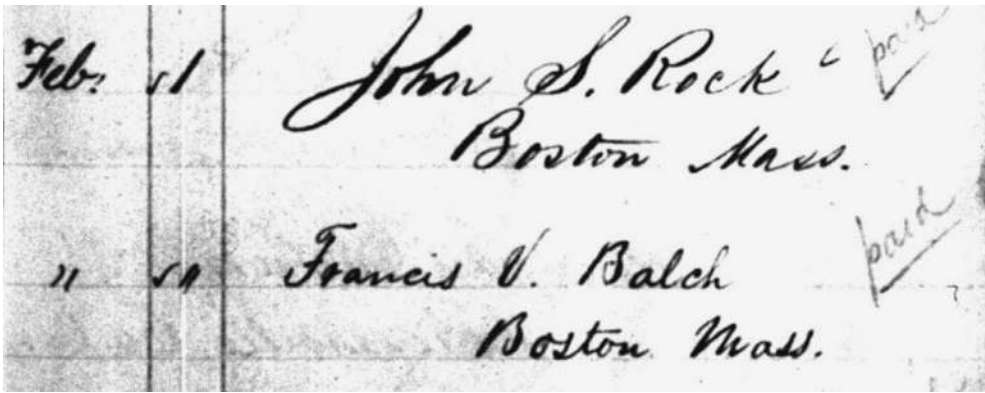 Feb. 1 John S. Rock paid
Boston Mass.
" " Francis V. Balch paid
Boston Mass.